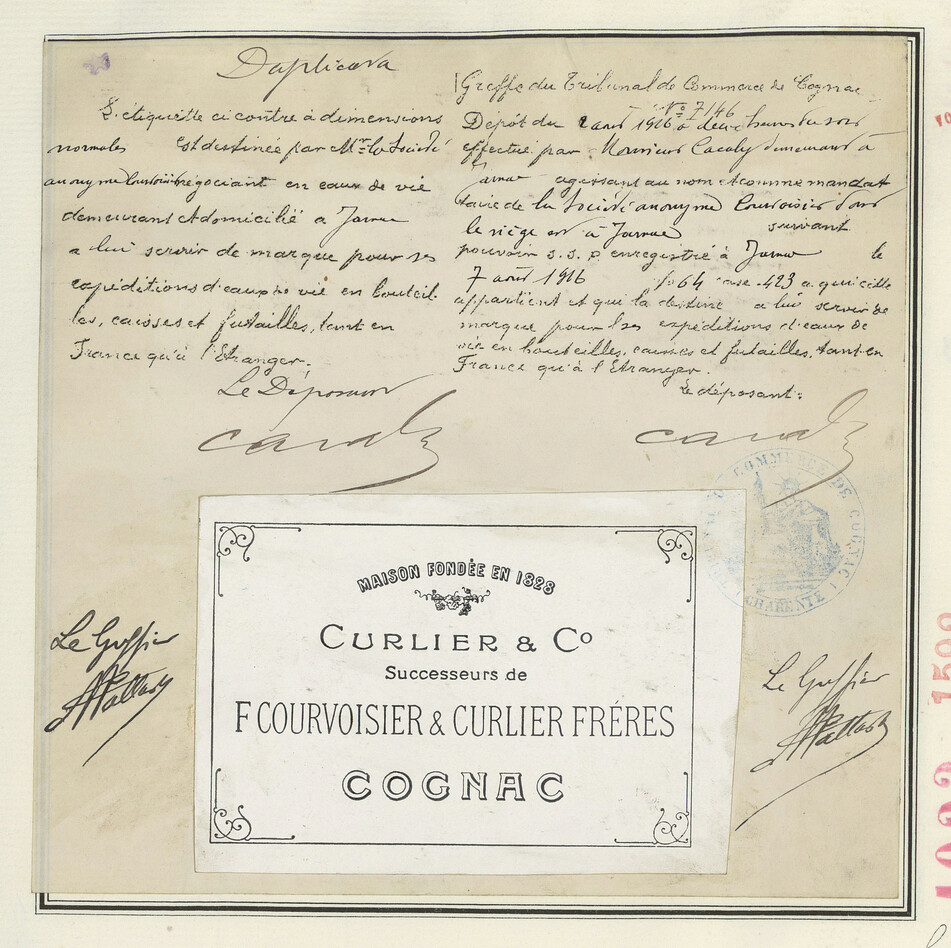 Duplicata
L'étiquette ci contre à dimensions
normales est destinée par Mr la Société
anonyme Courvoisier négociant en eaux de vie
demeurant et domicilié à Jarnac
a lui servir de marque pour ses
expéditions d'eaux de vie en bouteil
les, caisses et futailles, tant en
France qu'à l'Etranger.
Le Déposant
Greffe du Tribunal de Commerce de Cognac
No 7146
Dépôt du août 1916 à deux heures du soir
effectué par Monsieur demeurant à
Jarnac agissant au nom et comme mandat
taire de la Société anonyme Courvoisier dont
le siège est à Jarnac suivant
pouvoir s.s.p. enregistré à Jarnac le
7 août 1916 fo 64 case 423 a qui elle
appartient et qui la destine a lui servir de
marque pour les expéditions d'eaux de
vie en bouteilles, caisses et futailles, tant en
France qu'à l'Etranger.
Le déposant:
COMMERCE DE COGNAC
CHARENTE
MAISON FONDÉE EN 1828
CURLIER & Co
Successeurs de
F COURVOISIER & CURLIER FRÉRES
COGNAC
Le Greffier
Le Greffier